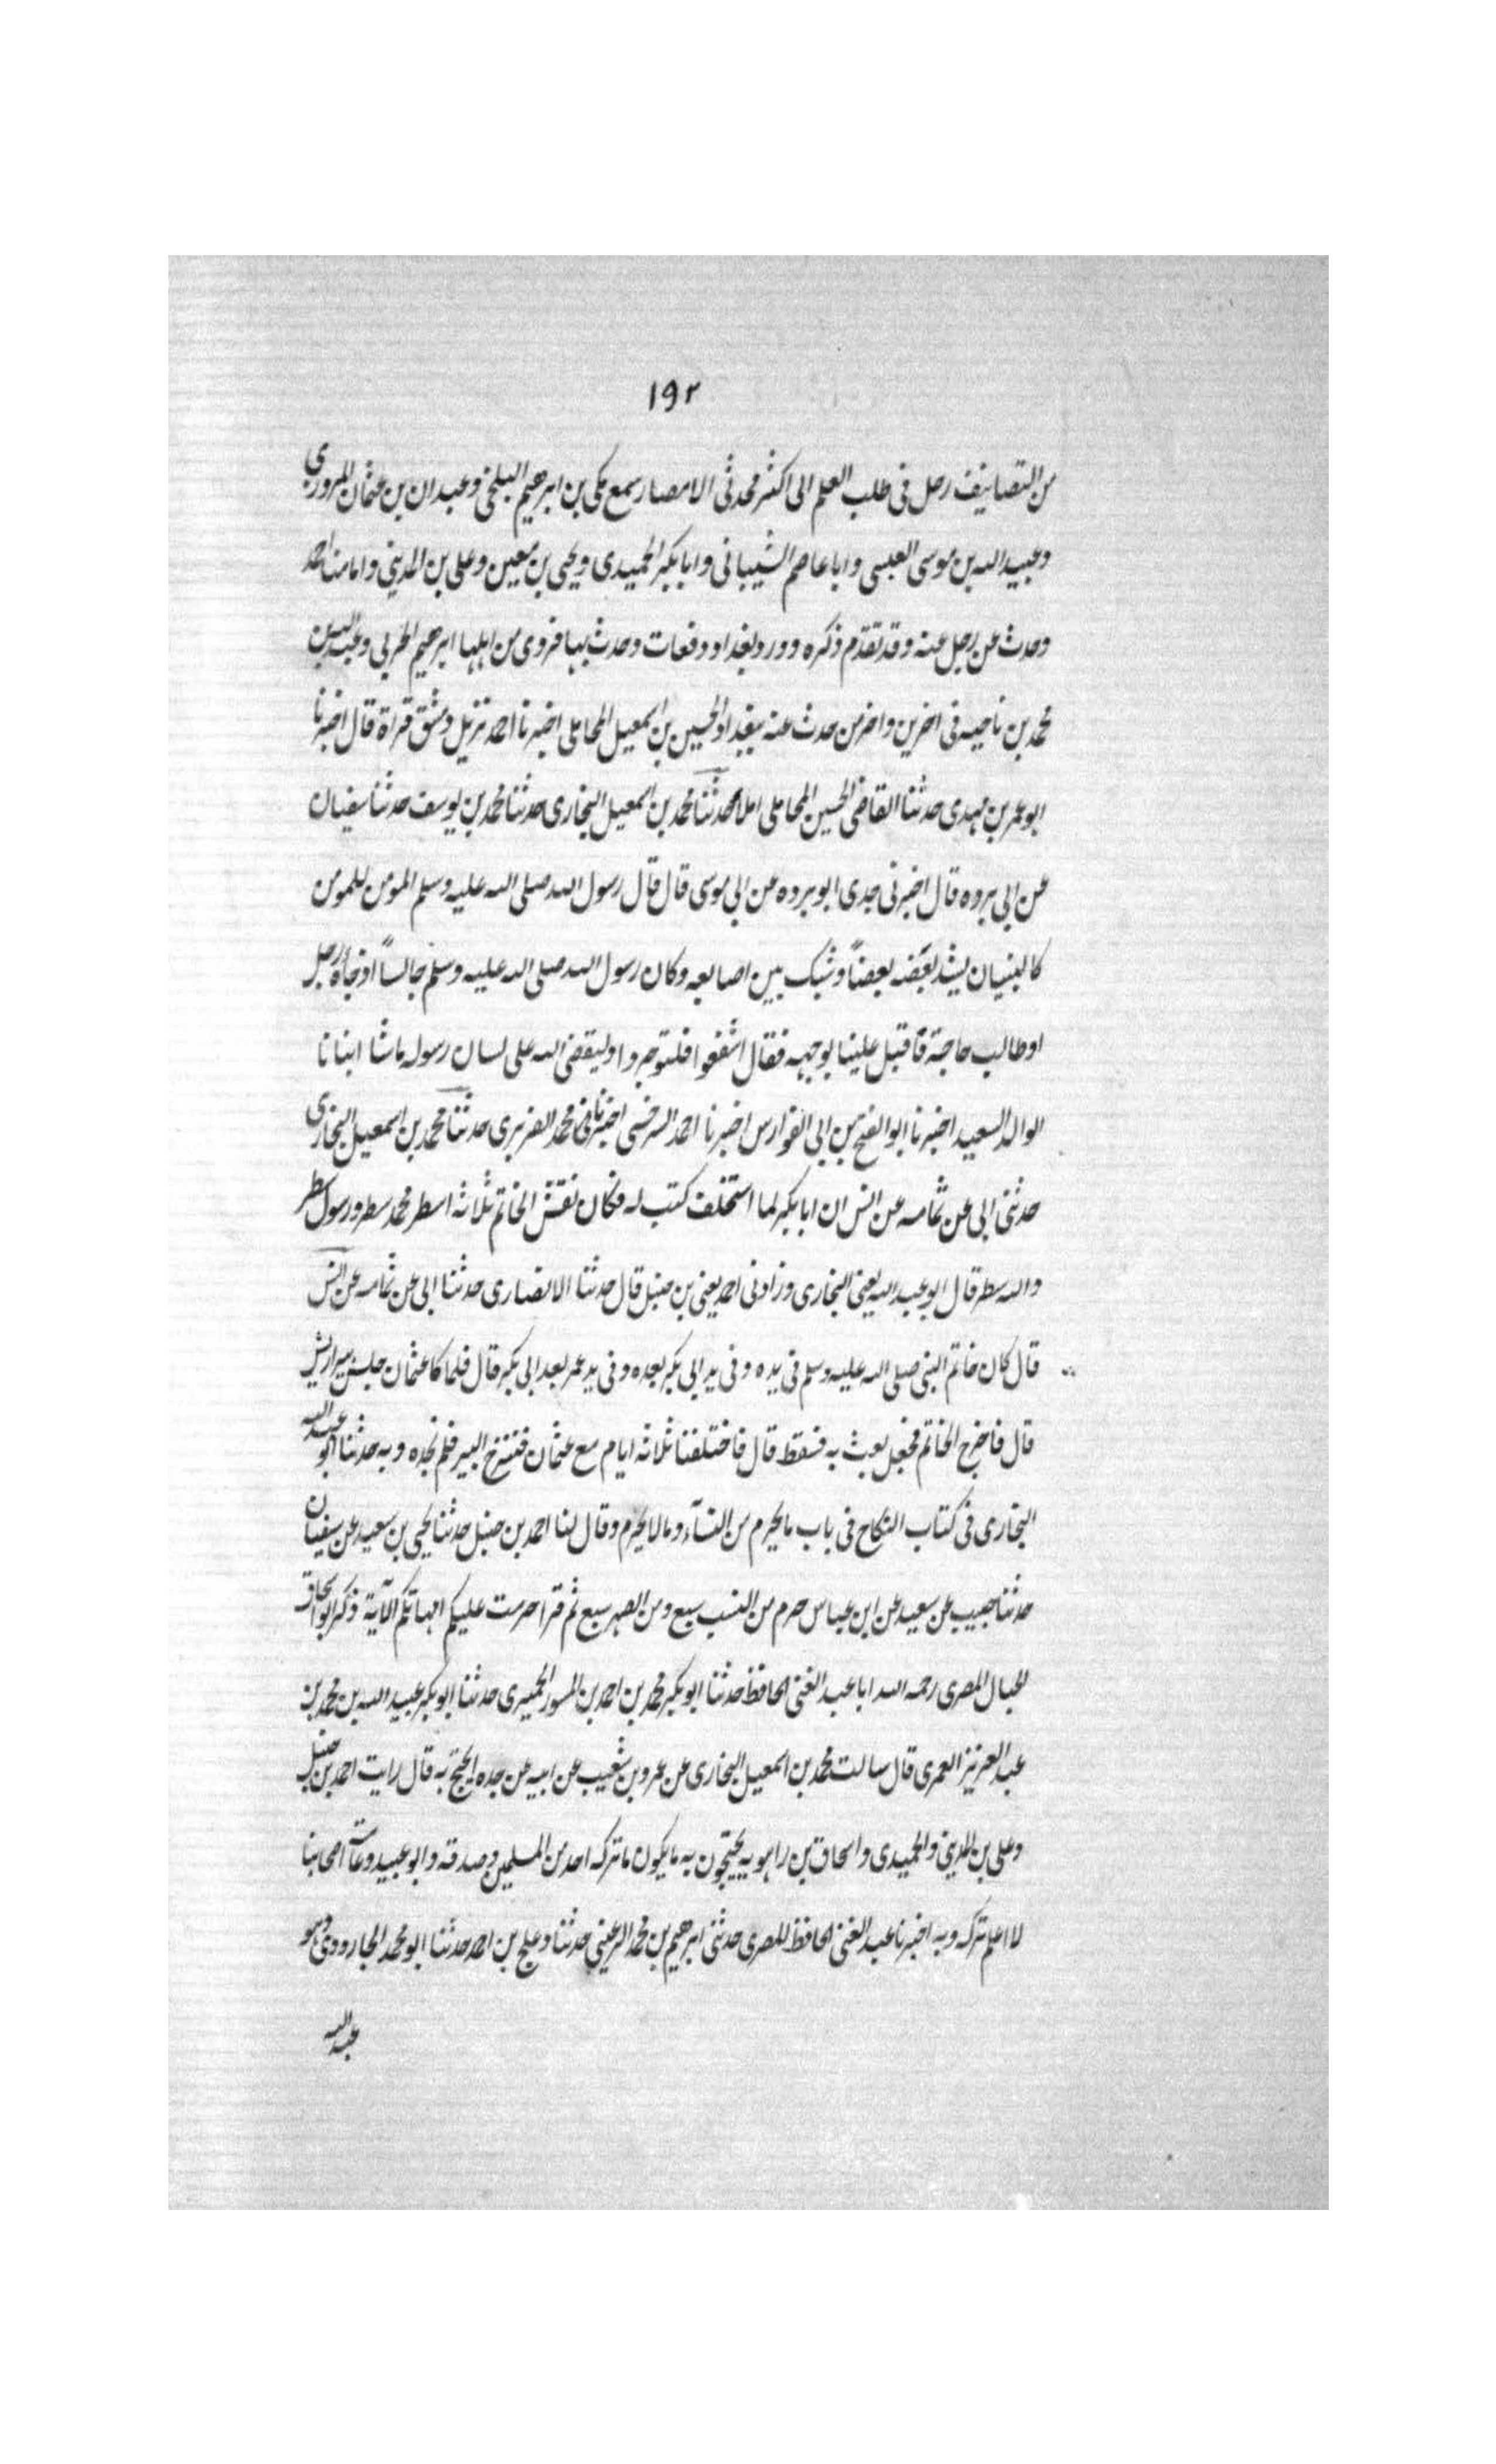 ١٩٢
من التصانيف رحل فى طلب العلم الى اكثر محدثى الامصار سمع مكى بن ابرهيم البلخى وعبدان بن عثمان المروزى
وعبيد الله بن موسى العبسى وابا عاصم الشيبانى وابا بكر الحميدى ويحيى بن معين وعلى بن المدينى وامامنا احمد
وحدث عن رجل عنه وقد تقدم ذكره وورد بغداد دفعات وحدث بها فروى من اهلها ابرهيم الحربى وعبد الله بن
محمد بن ناجيه فى اخرين واخر من حدث عنه ببغداد الحسين بن اسمعيل المحاملى اخبرنا احمد نزيل دمشق قراة قال اخبرنا
ابو عمر بن مهدى حدثنا القاضى الحسين المحاملى املا حدثنا محمد بن اسمعيل البخارى حدثنا محمد بن يوسف حدثنا سفيان
عن ابى برده قال اخبرنى جدى ابو برده عن ابى موسى قال قال رسول الله صلى الله عليه وسلم المومن للمومن
كالبنيان يشد بعضه بعضاً وشبك بين اصابعه وكان رسول الله صلى الله عليه وسلم جالساً اذ جاءه رجل
او طالب حاجة فاقبل علينا بوجهه فقال اشفعوا فلتوجروا وليقضى الله على لسان رسوله ماشا انبانا
الوالد السعيد اخبرنا ابو الفتح بن ابى الفوارس اخبرنا احمد السرخسى محمد الفربرى حدثنا محمد بن اسمعيل البخارى
حدثنى ابى عن ثمامه عن انس ان ابا بكر لما استخلف كتب له فكان نقش الخاتم ثلاثه اسطر محمد سطر ورسول سطر
والله سطر قال ابو عبد الله يعنى البخارى وزادنى احمد يعنى بن حنبل قال حدثنا الانصارى حدثنا ابى عن ثمامه عن انس
قال كان خاتم النبى صلى الله عليه وسلم فى يده وفى يد ابى بكر بعده وفى يد عمر بعد ابى بكر قال فلما كا عثمان جلس بير اريس
قال فاخرج الخاتم فجعل يعبث به فسقط قال فاختلفنا ثلاثه ايام مع عثمان فننزح البير فلم نجده وبه حدثنا ابو عبد الله
البخارى فى كتاب النكاح فى باب مايحرم من النسآء ومالايحرم وقال لنا احمد بن حنبل حدثنا يحيى بن سعيد عن سفيان
حدثنا حبيب عن سعيد عن ابن عباس حرم من النسب سبع ومن الصهر سبع ثم قرا حرمت عليكم امهاتكم الآية ذكر ابو اسحاق
الحبال المصرى رحمه الله ابا عبد الغنى الحافظ حدثنا ابو بكر محمد بن احمد بن المسور الحميرى حدثنا ابو بكر عبيد الله بن محمد بن
عبد العزيز العمرى قال سالت محمد بن اسمعيل البخارى عن عمرو بن شعيب عن ابيه عن جده ايحتج به قال رايت احمد بن حنبل
وعلى بن المدينى والحميدى واسحاق بن راهويه يحتجون به مايكون ماتركه احد من المسلمين وصدقه وابو عبيد وعامة اصحابنا
لا اعلم تركه وبه اخبرنا عبد الغنى الحافظ المصرى حدثنى ابرهيم بن محمد الرعينى حدثنا دعلج بن احمد حدثنا ابو محمد الجارودى وهو
عبد الله